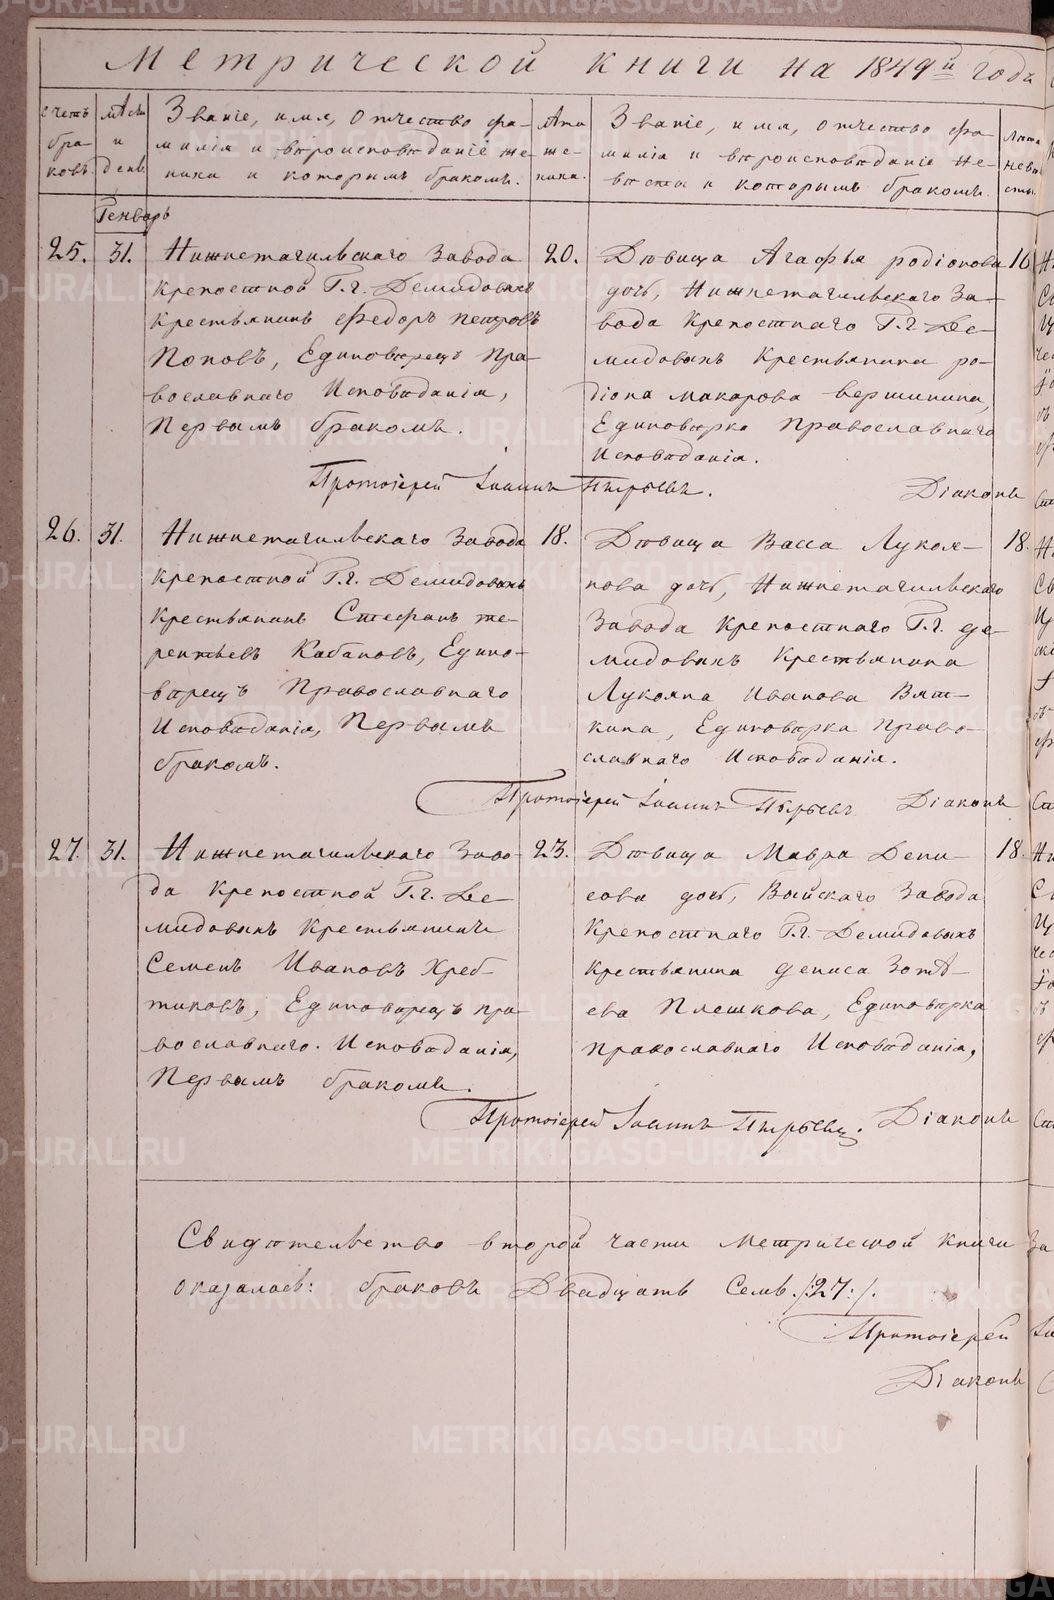 Метрической книги на 1849й года
счетъ браковъ.
мѣсяц и день
Званіе, имя, отчество фа-
милія и вѣроисповѣданіе же-
ниха и которымъ бракомъ.
лѣта же-
ниха.
Званіе, имя, отчество фа-
милія и вѣроисповѣданіе не-
вѣсты и которымъ бракомъ.
лѣта невѣ
сты.
Генварь
25. 31.
Нижнетагильскаго завода
крепостной Г.г. Демидовыхъ
крестьянинъ Федоръ Петровъ
Поповъ, Единоверецъ Пра-
вославнаго Исповѣданія,
Первымъ бракомъ.
20.
Дѣвица Агафья родіонова
дочь, Нижнетагильскаго За-
вода Крепостнаго Г.г. Де-
мидовыхъ Крестьянина ро-
діона макарова вершинина,
Единовѣрка Православнаго
Исповѣданія.
16
Протоіерей Іоаннъ Пырьевъ.
Діаконъ
26. 31.
Нижнетагильскаго Завода
крепостной Г.г. Демидовыхъ
Крестьянинъ Стефанъ те-
рентьевъ Кабановъ, Едино-
верецъ Православнаго
Исповѣданія, Первымъ
бракомъ.
18.
Дѣвица Васса Лукоя-
нова дочь, Нижнетагильскаго
Завода Крепостнаго Г.г. де-
мидовыхъ Крестьянина
Лукояна Иванова Вят-
кина, Единовѣрка Право-
славнаго Исповѣданія.
18.
Протоіерей Іоаннъ Пырьевъ Діаконъ
27. 31.
Нижнетагильскаго Заво-
да Крепостной Г.г. Де-
мидовыхъ Крестьянинъ
Семенъ Ивановъ Хреб-
тиковъ, Единоверецъ пра-
вославнаго. Исповѣданія,
Первымъ бракомъ.
23.
Дѣвица Мавра Дени-
сова дочь, Выйскаго Завода
Крепостнаго Г.г. Демидовыхъ
крестьянина дениса Зотѣ-
ева Плешкова, Единовѣрка
Православнаго Исповѣданія,
18.
Протоіерей Іоаннъ Пырьевъ. Діаконъ
Свидѣтельство второй части Метрической книги за
оказалось: браковъ Двадцать Семь. /27:/.
Протоіерей
Діаконъ
METRIKI.GASO-URAL.RU